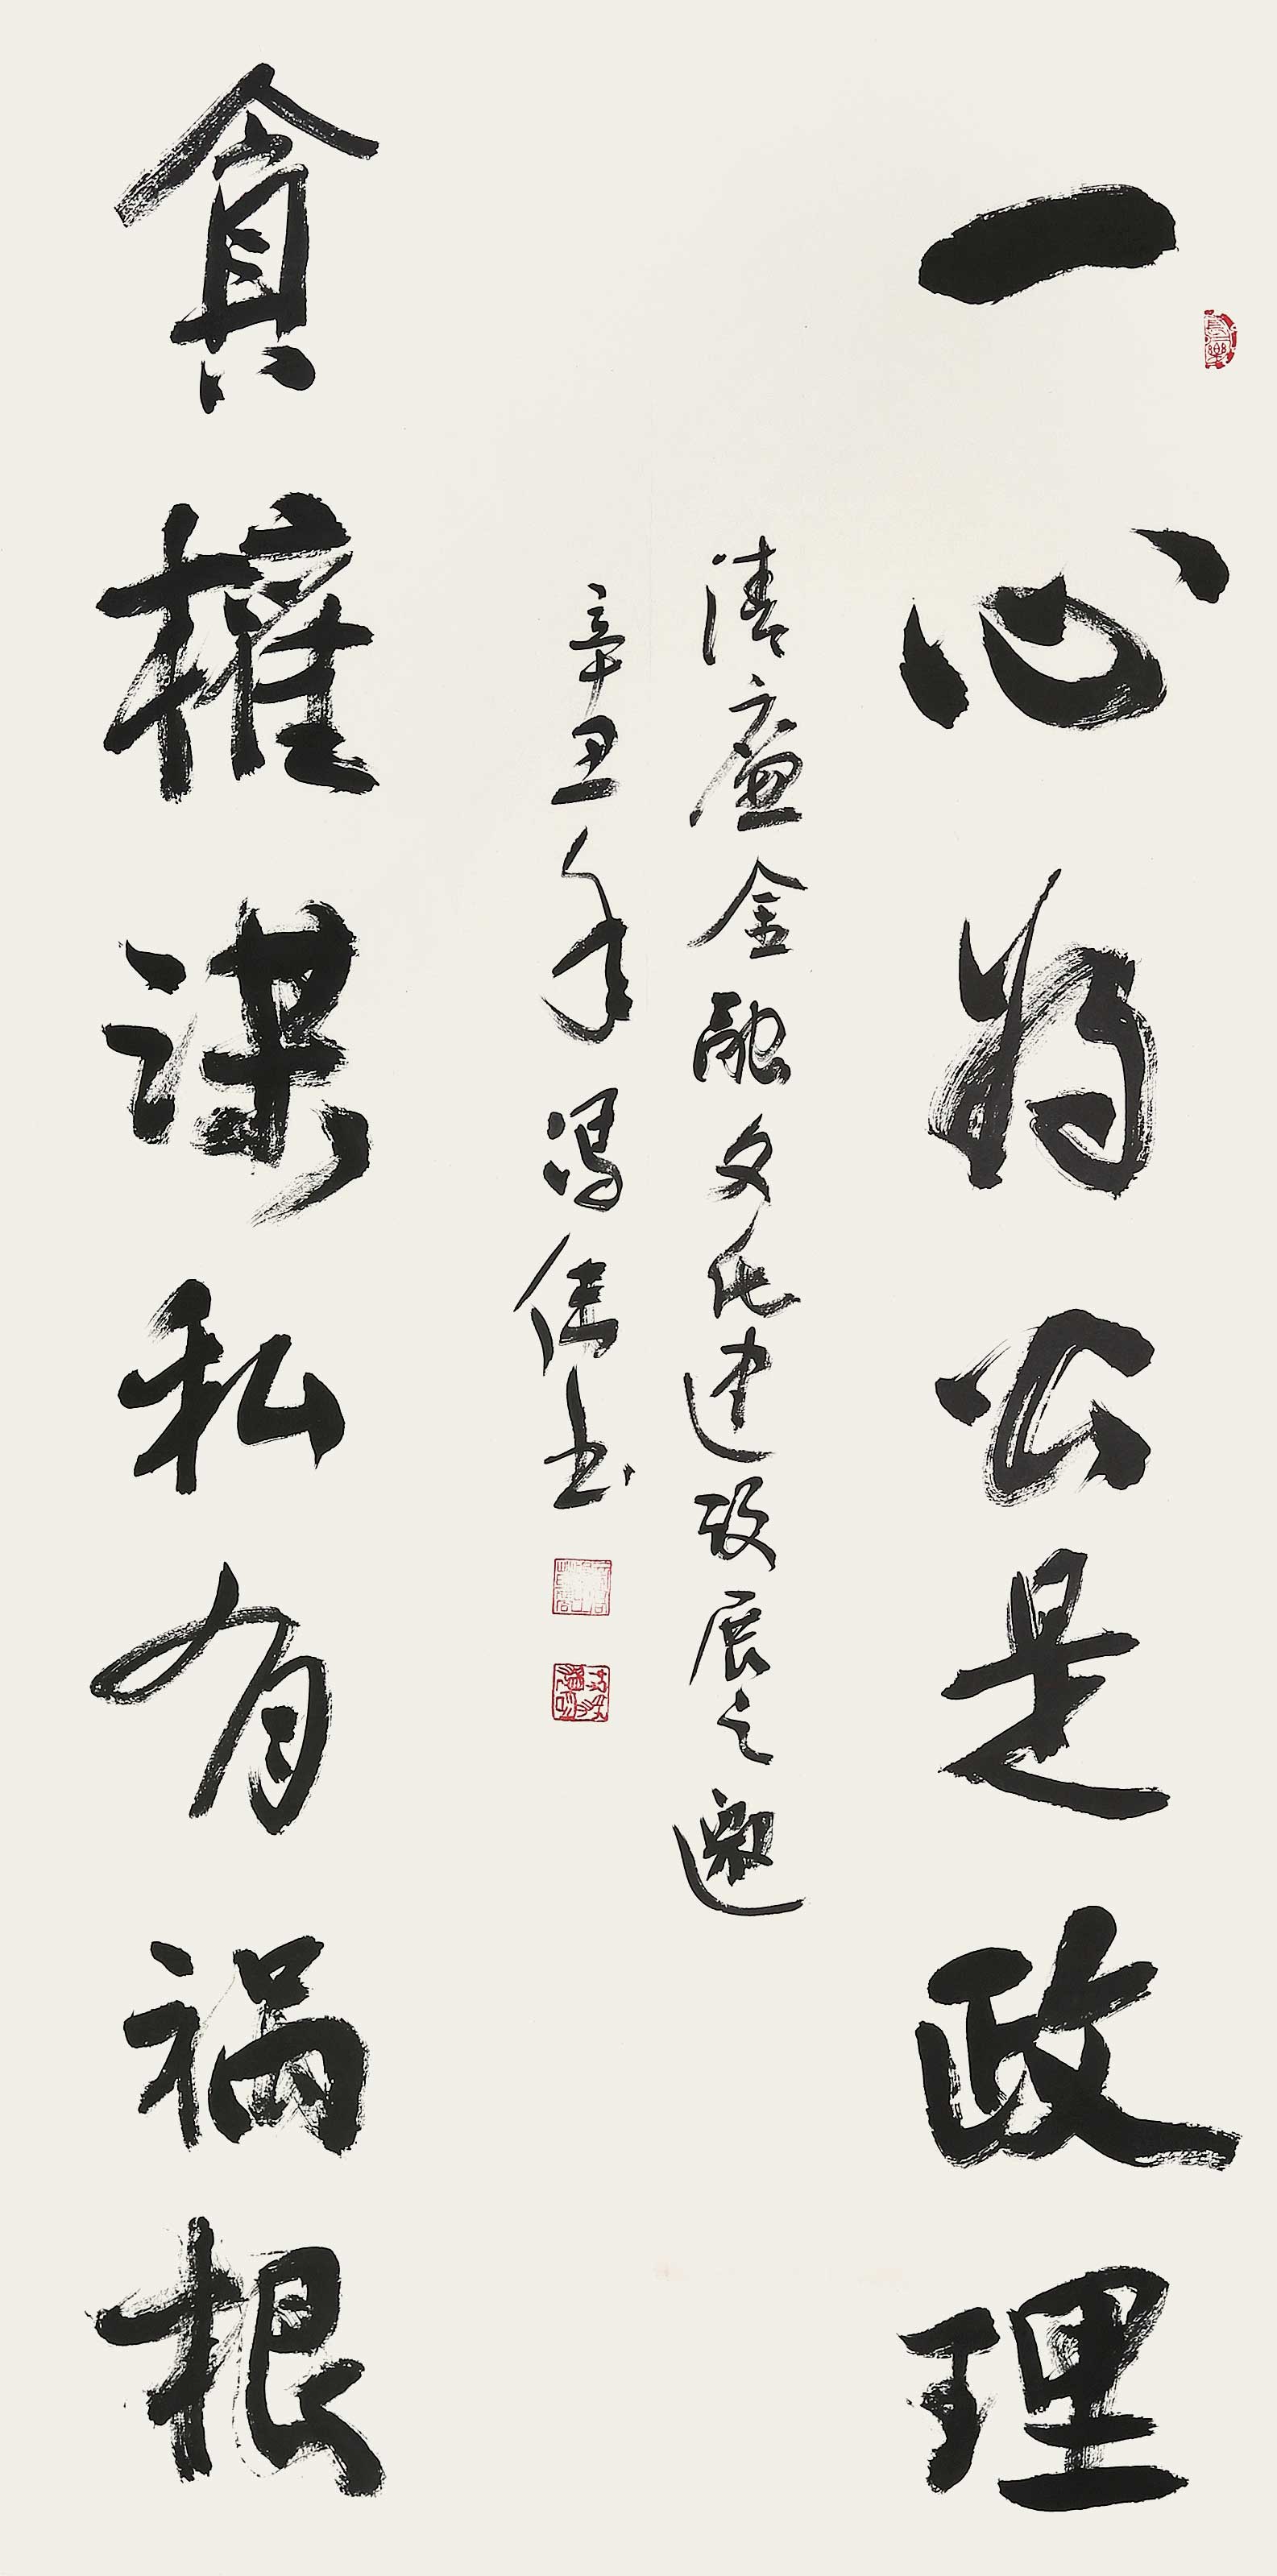 一心为公是政理
清廉金融文化建设展之邀
辛丑年冯伟书
貪權謀私有祸根